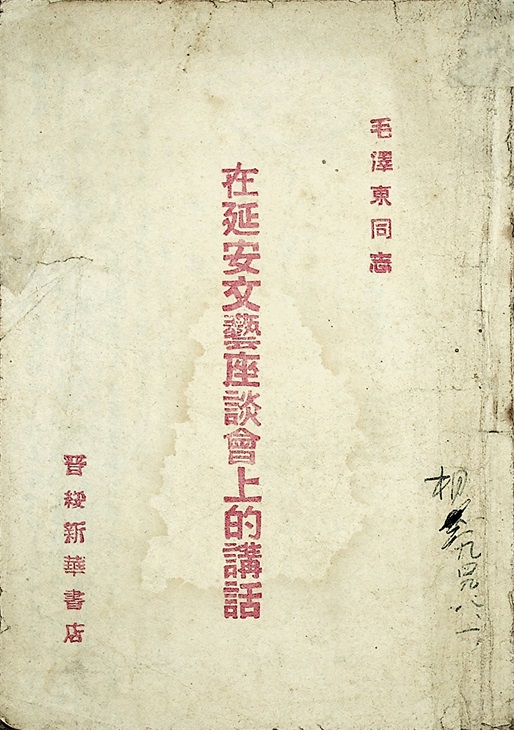 毛澤東同志
在延安文藝座談會上的講話
晋綏新華書店
一九四八.八.一